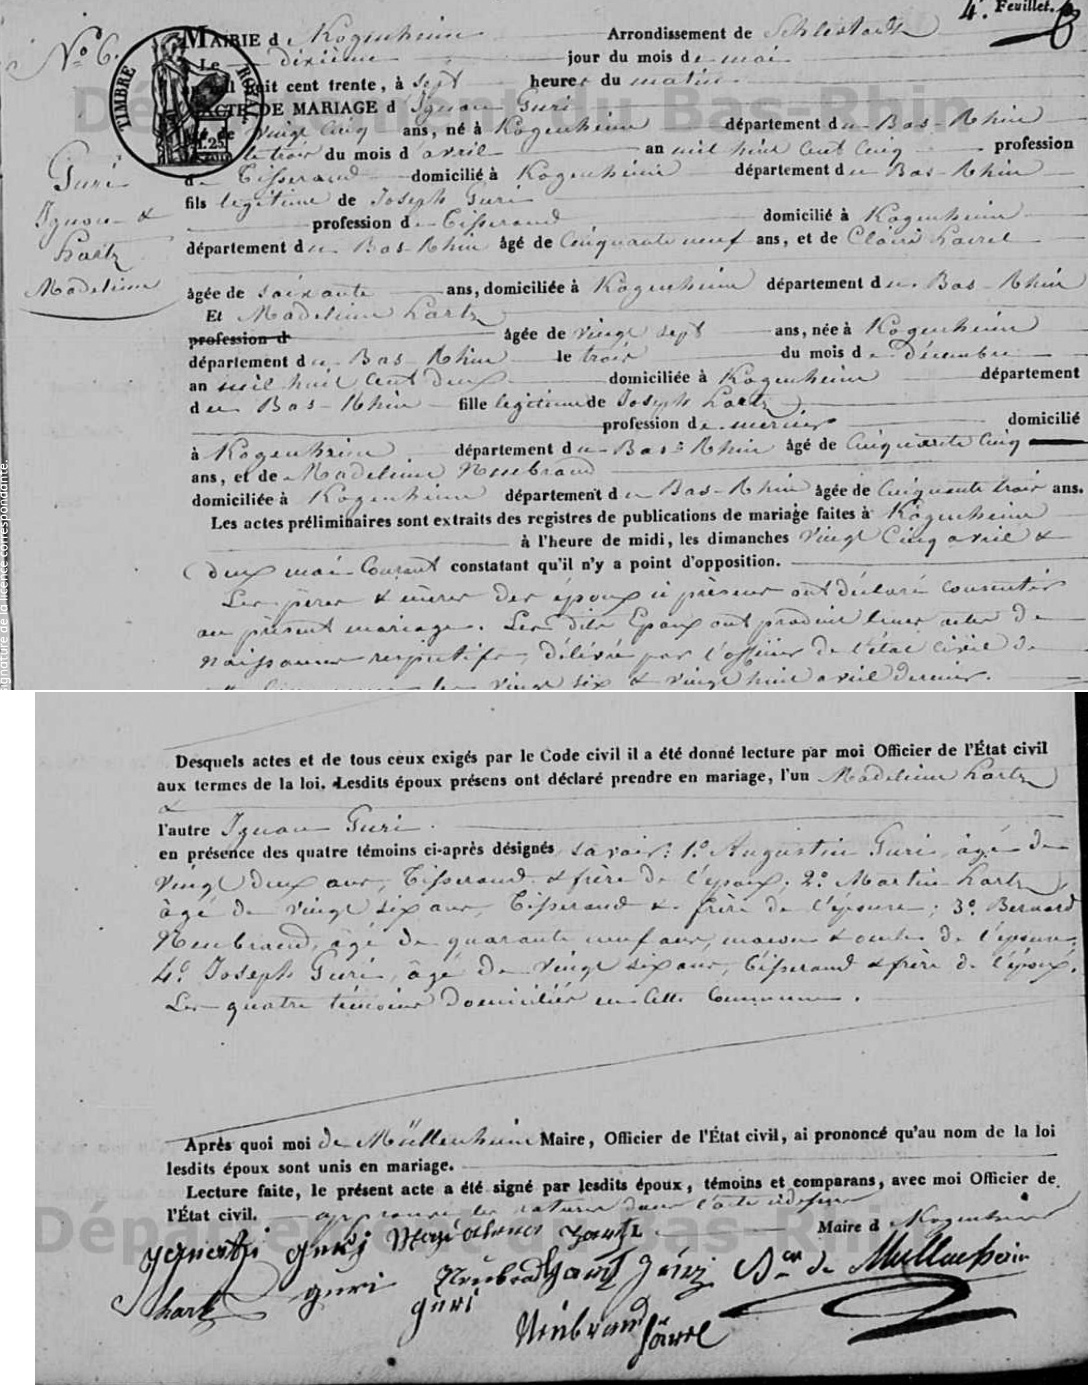 4e. Feuillet.
No. 6.
MAIRIE de Kogenheim Arrondissement de Schlestadt
Le dixième jour du mois de mai
mil huit cent trente, à sept heures du matin
ACTE DE MARIAGE d'Ignace Guri
âgé de vingt cinq ans, né à Kogenheim département du Bas-Rhin
le trois du mois d'avril an mil huit cent cinq profession
de Tisserand domicilié à Kogenheim département du Bas-Rhin
fils legitime de Joseph Guri
profession de Tisserand domicilié à Kogenheim
département du Bas-Rhin âgé de Cinquante neuf ans, et de Claire
âgée de soixante ans, domiciliée à Kogenheim département du Bas-Rhin
Et Madeleine Hartz
profession d âgée de vingt sept ans, née à Kogenheim
département du Bas-Rhin le trois du mois de décembre
an mil huit cent deux domiciliée à Kogenheim département
du Bas-Rhin fille legitime de Joseph Hartz
profession de mercier domicilié
à Kogenheim département du Bas-Rhin âgé de Cinquante Cinq
ans, et de Madeleine Neubrand
domiciliée à Kogenheim département du Bas-Rhin âgée de Cinquante trois ans.
Les actes préliminaires sont extraits des registres de publications de mariage faites à Kogenheim
à l'heure de midi, les dimanches vingt Cinq avril &
deux mai Courant constatant qu'il n'y a point d'opposition.
Les pères & mères des époux ci présens ont déclaré consentir
au présent mariage. Les dits Epoux ont produit leurs actes de
naissance respectifs, délivrés par l'officier de l'état civil de
les vingt six & vingt huit avril dernier.
Guri
Ignace &
Hartz
Madeleine
TIMBRE ROYAL
1.25
Département du Bas-Rhin
signature de la licence correspondante.
Desquels actes et de tous ceux exigés par le Code civil il a été donné lecture par moi Officier de l'État civil
aux termes de la loi. Lesdits époux présens ont déclaré prendre en mariage, l'un Madeleine Hartz
&
l'autre Ignace Guri.
en présence des quatre témoins ci-après désignés savoir: 1o. Augustin Guri, âgé de
vingt deux ans, Tisserand & frère de l'époux; 2o. Martin Hartz,
âgé de vingt six ans, Tisserand & frère de l'épouse; 3o. Bernard
Neubrand, âgé de quarante neuf ans, macon & oncle de l'épouse,
4o. Joseph Guri, âgé de vingt six ans, Tisserand & frère de l'époux.
Les quatre témoins domiciliés en cette Commune.
Après quoi moi de Müllenheim Maire, Officier de l'État civil, ai prononcé qu'au nom de la loi
lesdits époux sont unis en mariage.
Lecture faite, le présent acte a été signé par lesdits époux, témoins et comparans, avec moi Officier de
l'État civil. approuvé les ratures dans l'acte
Maire de Kogenheim
Département du Bas-Rhin
guri
hartz guri Neubrand guri
guri Bon de Mullenheim
Neubrand